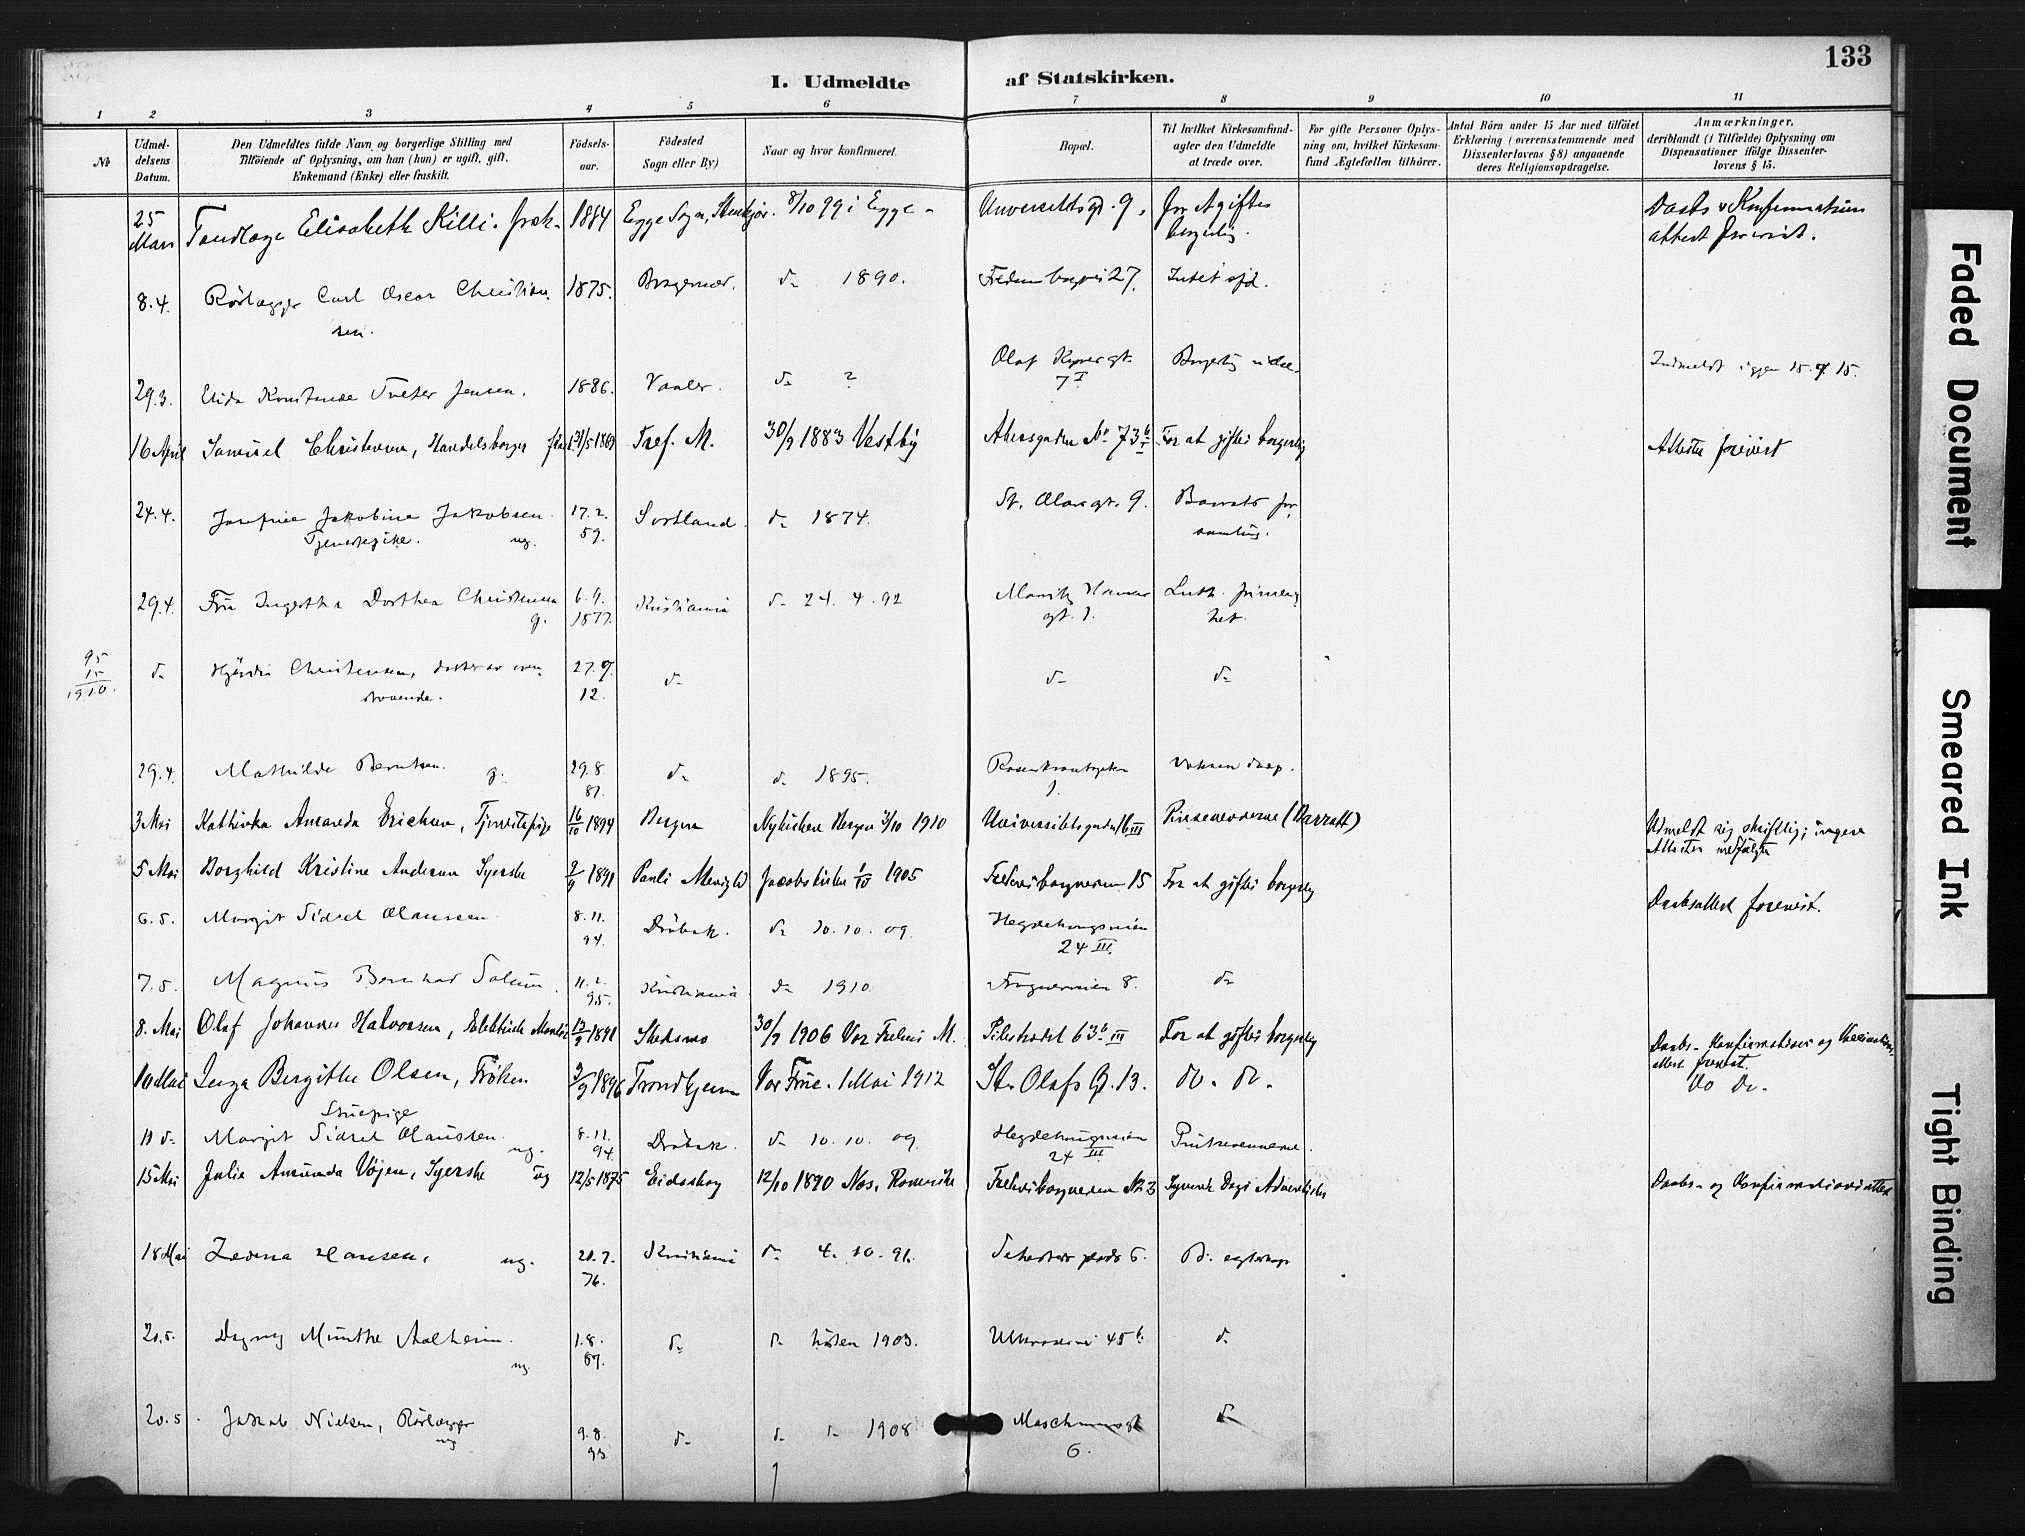 133
I. Udmeldte af Statskirken.
1 2 3 4 5 6 7 8 9 10 11
No
Udmeldelsens Datum.
Den Udmeldtes fulde Navn og borgerlige Stilling med
Tilföiende af Oplysning, om han (hun) er ugift, gift.
Enkemand (Enke) eller fraskilt.
Födselsaar.
Födested
Sogn eller By)
Naar og hvor konfirmeret.
Bopæl.
Til hvilket Kirkesamfund-
agter den Udmeldte
at træde over.
For gifte Personer Oplys-
ning om, hvilket Kirkesam-
fund Ægtefællen tilhörer.
Antal Börn under 15 Aar med tilföiet
Erklæring (overensstemmende med
Dissenterlovens § 8) angaaende
deres Religionsopdragelse.
Anmærkninger.
deriblandt (i Tilfælde) Oplysning om
Dispensationer ifölge Dissenter-
lovens § 15.
25 Mars Tandlæge Elisabeth Killi. frøk. 1884 Egge Sogn, Stenkjær. 8/10 99 i Egge - Universitetsgd. 9, for At giftes
borgerlig. Daabs & Konfirmations
attest forevist.
8.4. Rörlægger Carl Oscar Christian-
sen. 1875. Bragernes. do 1890. Fredensborgvei 27. Intet opl.
29.3. Tveter Jensen. 1886. Vaaler. do ? Olaf Kyrres gt.
7 I Borgerlig Indmeldt igjen 15.9.15.
16 April Samuel Christensen, Handelsborger 31/5 1869 Tref. M. 30/9 1883 Vestby Akersgaden No 73 b I For at giftes borgerlig Attester forevist
24.4. Josefine Jakobine Jakobsen
Tjenestepike. ug. 17.2.
59. Sortland. do 1874. St. Olavsgt. 9. Barratts for-
samling.
29.4. Fru Ingertha Dorthea Christensen
g. 6.9.
1877. Kristiania do 24.4.92 gt. 1. Luth. frimenig-
het.
95
15
1910. do Hjördis Christensen, datter av oven-
staaende. 27.9.
12. do do do
29.4. Mathilde Berntsen. g. 29.8.
81. do do 1895. Rosenkrantzgaten
1. Voksen daap.
3 Mai Kathinka Amanda Erichsen, Tjenestepige 16/10 1894 Bergen Nykirken Bergen 3/10 1910 Universitetsgaden 16 III Pinsevennerne (Barratt) Udmeldt sig skriftlig; ingen
Attester medfulgte
5 Mai Borghild Kristine Andersen Syerske 2/9 1891 Pauli Menighd Jacobskirken 1/10 1905 Fredensborgveien 15 For at giftes borgerlig Daabsattest forevist.
6.5. Margit Sidsel Olaussen 8.11.
94. Dröbak. do 10.10.09. Hegdehaugsveien
24 III.
7.5. Magnus Bernhard Solum. 11.2.
95. Kristiania do 1910. Frognerveien 8. do
8. Mai Olaf Johannes Halvorsen, Elektrisk Montör 12/9 1891 Skedsmo 30/9 1906 Vor Frelsers M. Pilestrædet 63 b III For at giftes borgerlig Daabs- Konfirmations og Vaccinations-
attest forevist.
10 Mai Inga Bergithe Olsen, Fröken 3/9 1896 Trondhjem Vor Frue. 1 Mai 1912 St. Olafs G. 13. do. do. Do Do.
11 do Stuepige
Margit Sidsel Olaussen. ug. 8.11.
94. Dröbak. do 10.10.09. Hegdehaugsveien
24 III. Pinsevennerne.
15 Mai Julie Amunda Vøjen, Syerske ug 12/5 1875 Eidsskog 12/10 1890 Nes, Romerike Fredensborgveien No 3 Syvende Dags Adventister Daabs- og Konfirmationsattest
18 Mai Hansen, ug. 20.7.
76. Kristiania do 4.10.91. Sehesteds plads 6. B. egteskap
20.5. Dagny Munthe Aalheim. ug. 1.8.
87. do do hösten 1903. Ullevaalsvei 45 b. do
20.5. Jakob Nielsen, Rörlægger
ug 9.8.
93 do do do 1908. 6. do
Faded Document
Smeared Ink
Tight Binding